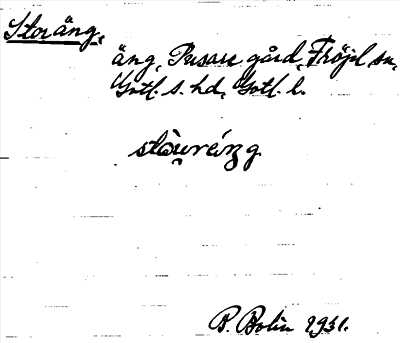 Storäng,
äng, Pusarve gård, Fröjel sn,
Gotl. s. hd, Gotl. l.
P. Bolin 1931.